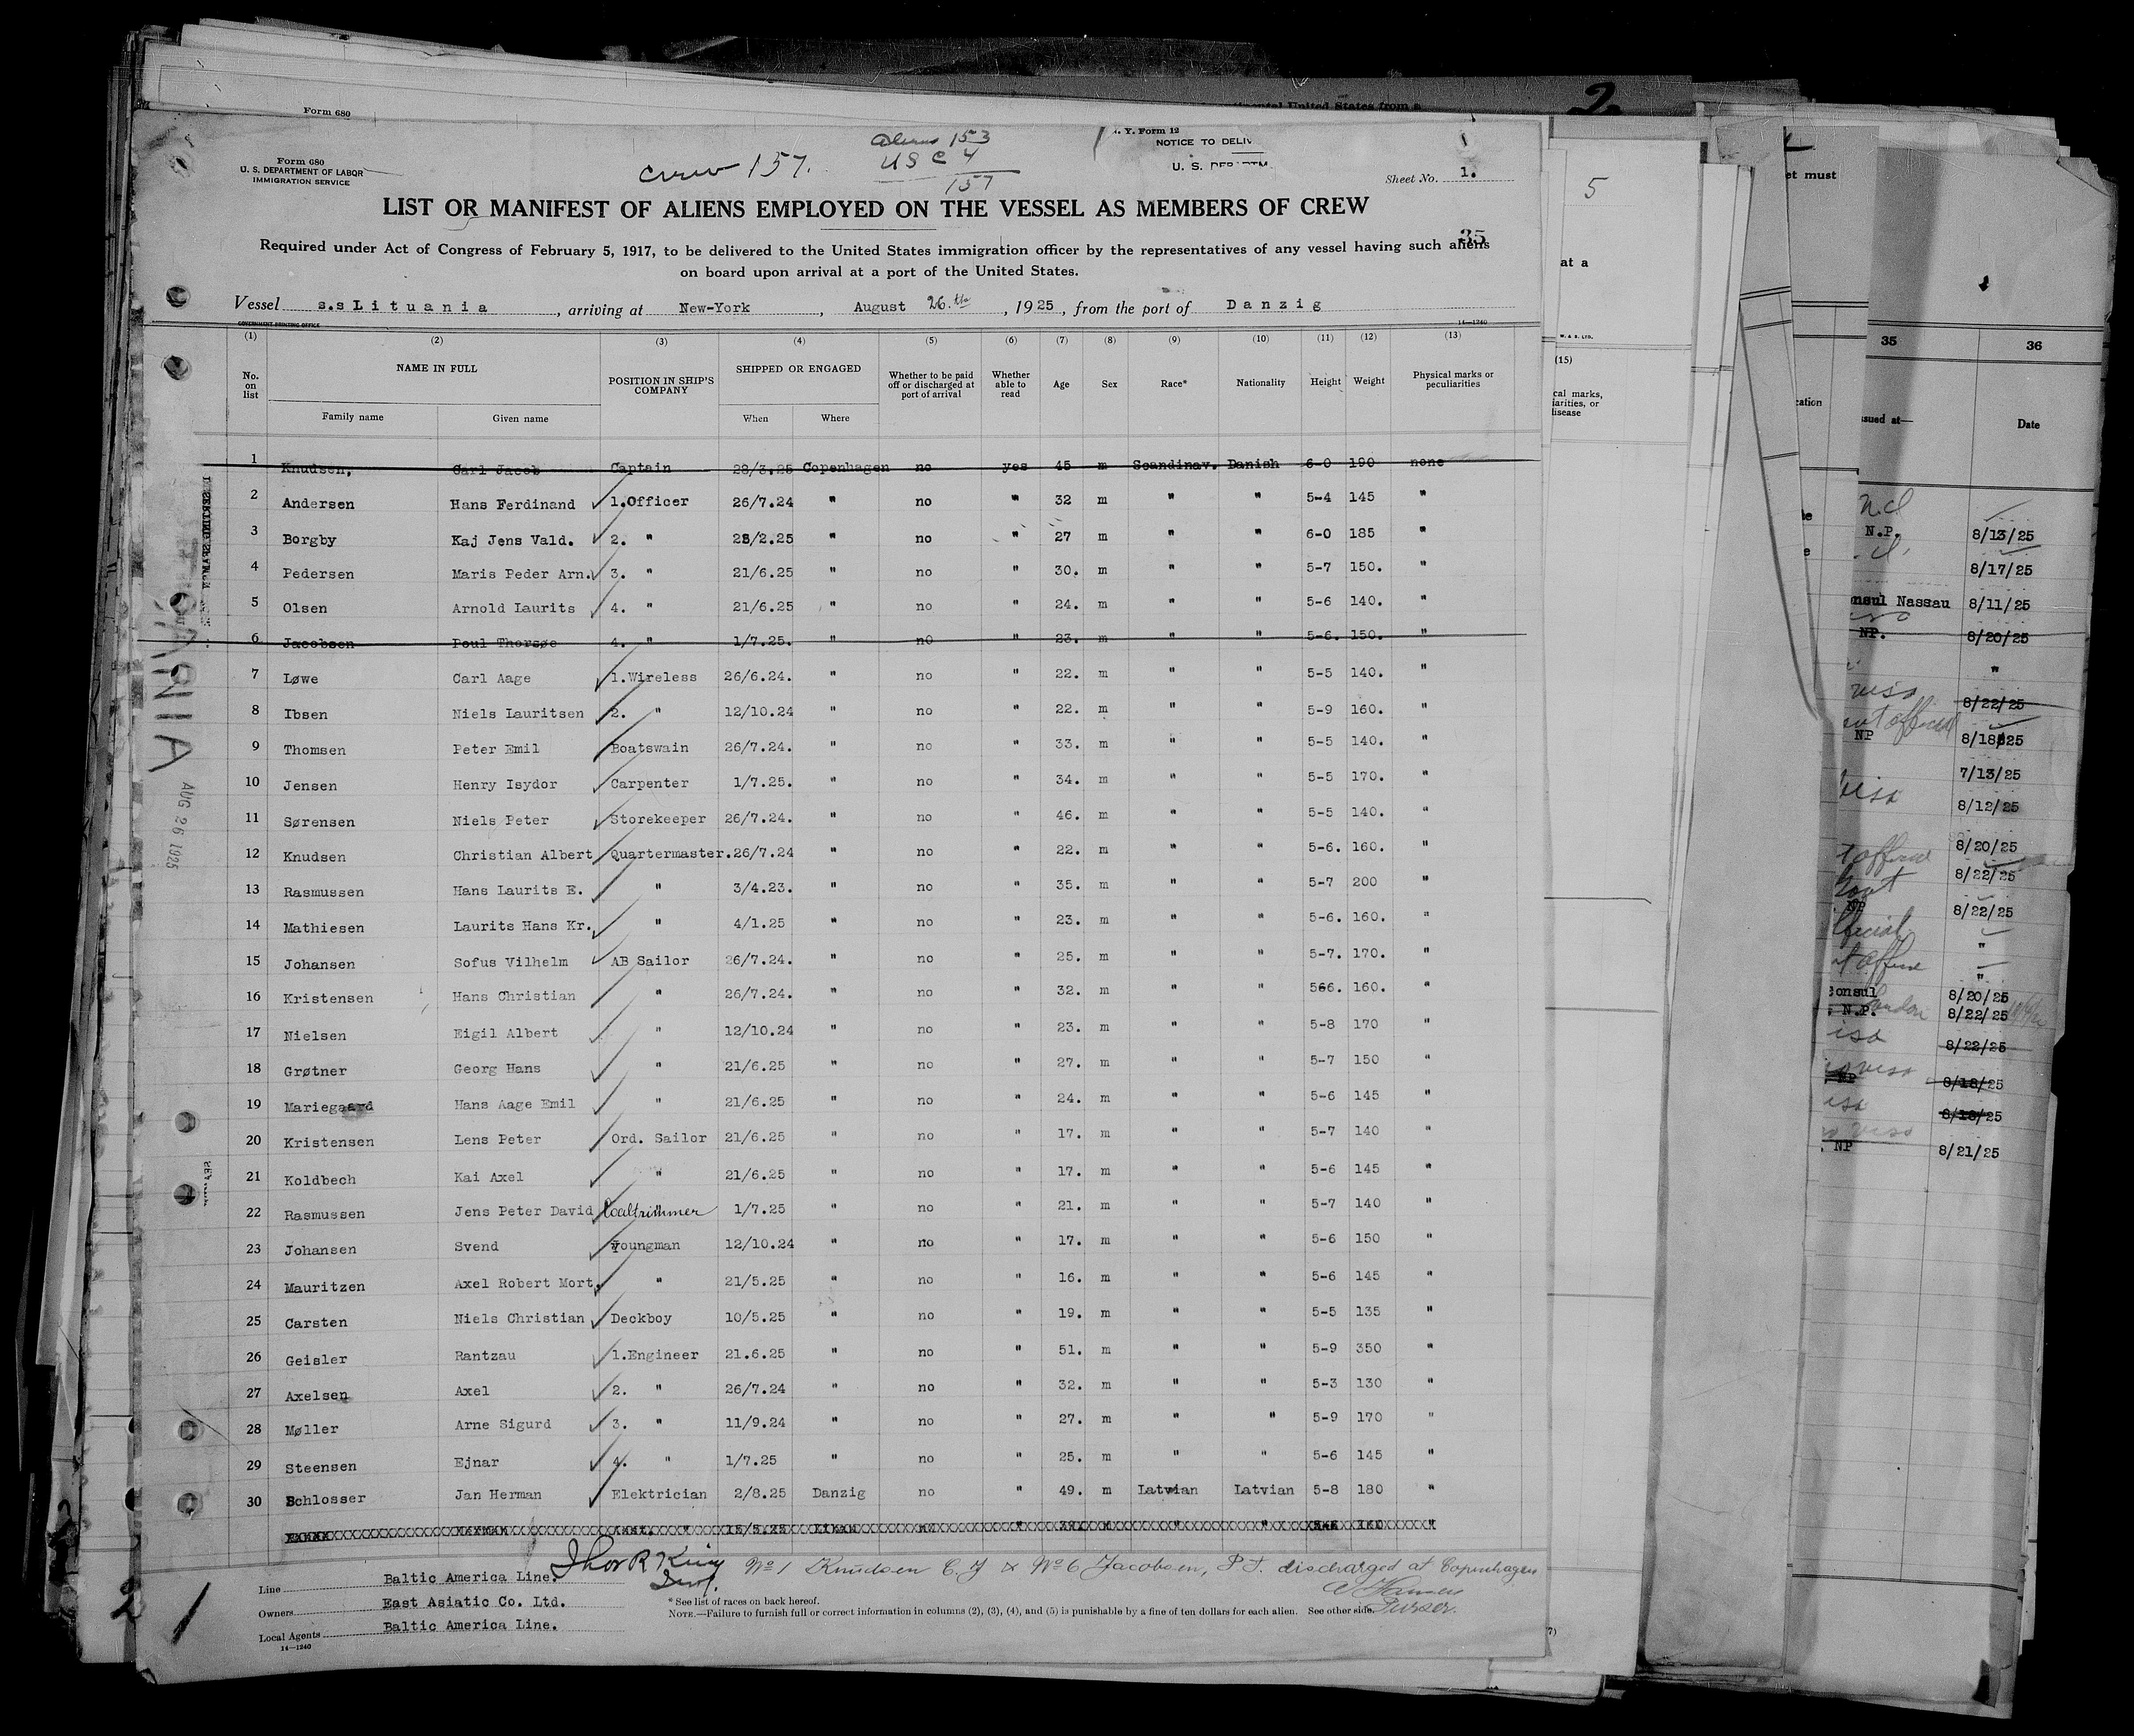 Form 680
Form 680
U. S. DEPARTMENT OF LABOR
IMMIGRATION SERVICE
Crew 157.
Aliens 153
USC 4
157
Y. Form 12
NOTICE TO DELIV
U. S.
Sheet No. 1.
LIST OR MANIFEST OF ALIENS EMPLOYED ON THE VESSEL AS MEMBERS OF CREW
35
Required under Act of Congress of February 5, 1917, to be delivered to the United States immigration officer by the representatives of any vessel having such aliens
on board upon arrival at a port of the United States.
Vessel s.s Lituania, arriving at New-York, August 26.th, 1925, from the port of Danzig
GOVERNMENT PRINTING OFFICE 14—1240
(1) (2) (3) (4) (5) (6) (7) (8) (9) (10) (11) (12) (13)
No. on list NAME IN FULL Family name Given name POSITION IN SHIP'S COMPANY SHIPPED OR ENGAGED When Where Whether to be paid off or discharged at port of arrival Whether able to read Age Sex Race* Nationality Height Weight Physical marks or peculiarities
1 Knudsen, Carl Jacob Captain 28/3.25 Copenhagen no yes 45 m Scandinav. Danish 6-0 190 none
2 Andersen Hans Ferdinand 1.Officer 26/7.24 " no " 32 m " " 5-4 145 "
3 Borgby Kaj Jens Vald. 2. " 28/2.25 " no " 27 m " " 6-0 185 "
4 Pedersen Maris Peder Arn. 3. " 21/6.25 " no " 30. m " " 5-7 150. "
5 Olsen Arnold Laurits 4. " 21/6.25 " no " 24. m " " 5-6 140. "
6 Jacobsen Poul Thorsøe 4. " 1/7.25. " no " 23. m " " 5-6. 150. "
7 Løwe Carl Aage 1.Wireless 26/6.24. " no " 22. m " " 5-5 140. "
8 Ibsen Niels Lauritsen 2. " 12/10.24 " no " 22. m " " 5-9 160. "
9 Thomsen Peter Emil Boatswain 26/7.24. " no " 33. m " " 5-5 140. "
10 Jensen Henry Isydor Carpenter 1/7.25. " no " 34. m " " 5-5 170. "
11 Sørensen Niels Peter Storekeeper 26/7.24. " no " 46. m " " 5-5 140. "
12 Knudsen Christian Albert Quartermaster. 26/7.24 " no " 22. m " " 5-6. 160. "
13 Rasmussen Hans Laurits E. " 3/4.23. " no " 35. m " " 5-7 200 "
14 Mathiesen Laurits Hans Kr. " 4/1.25 " no " 23. m " " 5-6. 160. "
15 Johansen Sofus Vilhelm AB Sailor 26/7.24. " no " 25. m " " 5-7. 170. "
16 Kristensen Hans Christian " 26/7.24. " no " 32. m " " 566. 160. "
17 Nielsen Eigil Albert " 12/10.24 " no " 23. m " " 5-8 170 "
18 Grøtner Georg Hans " 21/6.25 " no " 27. m " " 5-7 150 "
19 Mariegaard Hans Aage Emil " 21/6.25 " no " 24. m " " 5-6 145 "
20 Kristensen Lens Peter Ord. Sailor 21/6.25 " no " 17. m " " 5-7 140 "
21 Koldbech Kai Axel " 21/6.25 " no " 17. m " " 5-6 145 "
22 Rasmussen Jens Peter David Coaltrimmer 1/7.25 " no " 21. m " " 5-7 140 "
23 Johansen Svend Youngman 12/10.24 " no " 17. m " " 5-6 150 "
24 Mauritzen Axel Robert Mort. " 21/5.25 " no " 16. m " " 5-6 145 "
25 Carsten Niels Christian Deckboy 10/5.25 " no " 19. m " " 5-5 135 "
26 Geisler Rantzau 1.Engineer 21.6.25 " no " 51. m " " 5-9 350 "
27 Axelsen Axel 2. " 26/7.24 " no " 32. m " " 5-3 130 "
28 Møller Arne Sigurd 3. " 11/9.24 " no " 27. m " " 5-9 170 "
29 Steensen Ejnar 4. " 1/7.25 " no " 25. m " " 5-6 145 "
30 Schlosser Jan Herman Elektrician 2/8.25 Danzig no " 49. m Latvian Latvian 5-8 180 "
Thor R King
No 1 Knudsen C. J & No 6 Jacobsen, P.T. discharged at Copenhagen
Purser.
Line Baltic America Line.
Owners East Asiatic Co. Ltd.
Local Agents Baltic America Line.
14—1240
* See list of races on back hereof.
NOTE.—Failure to furnish full or correct information in columns (2), (3), (4), and (5) is punishable by a fine of ten dollars for each alien. See other side.
AUG 26 1925
1
2
2
5
at a
(15)
cal marks,
iarities, or
disease
et must
35 36
sued at— Date
N.P. 8/13/25
8/17/25
nsul Nassau 8/11/25
NP. 8/20/25
"
8/22/25
NP 8/18/25
7/13/25
8/12/25
8/20/25
8/22/25
NP 8/22/25
"
"
onsul 8/20/25
N.P. London 8/22/25
8/22/25
NP 8/18/25
8/18/25
NP 8/21/25